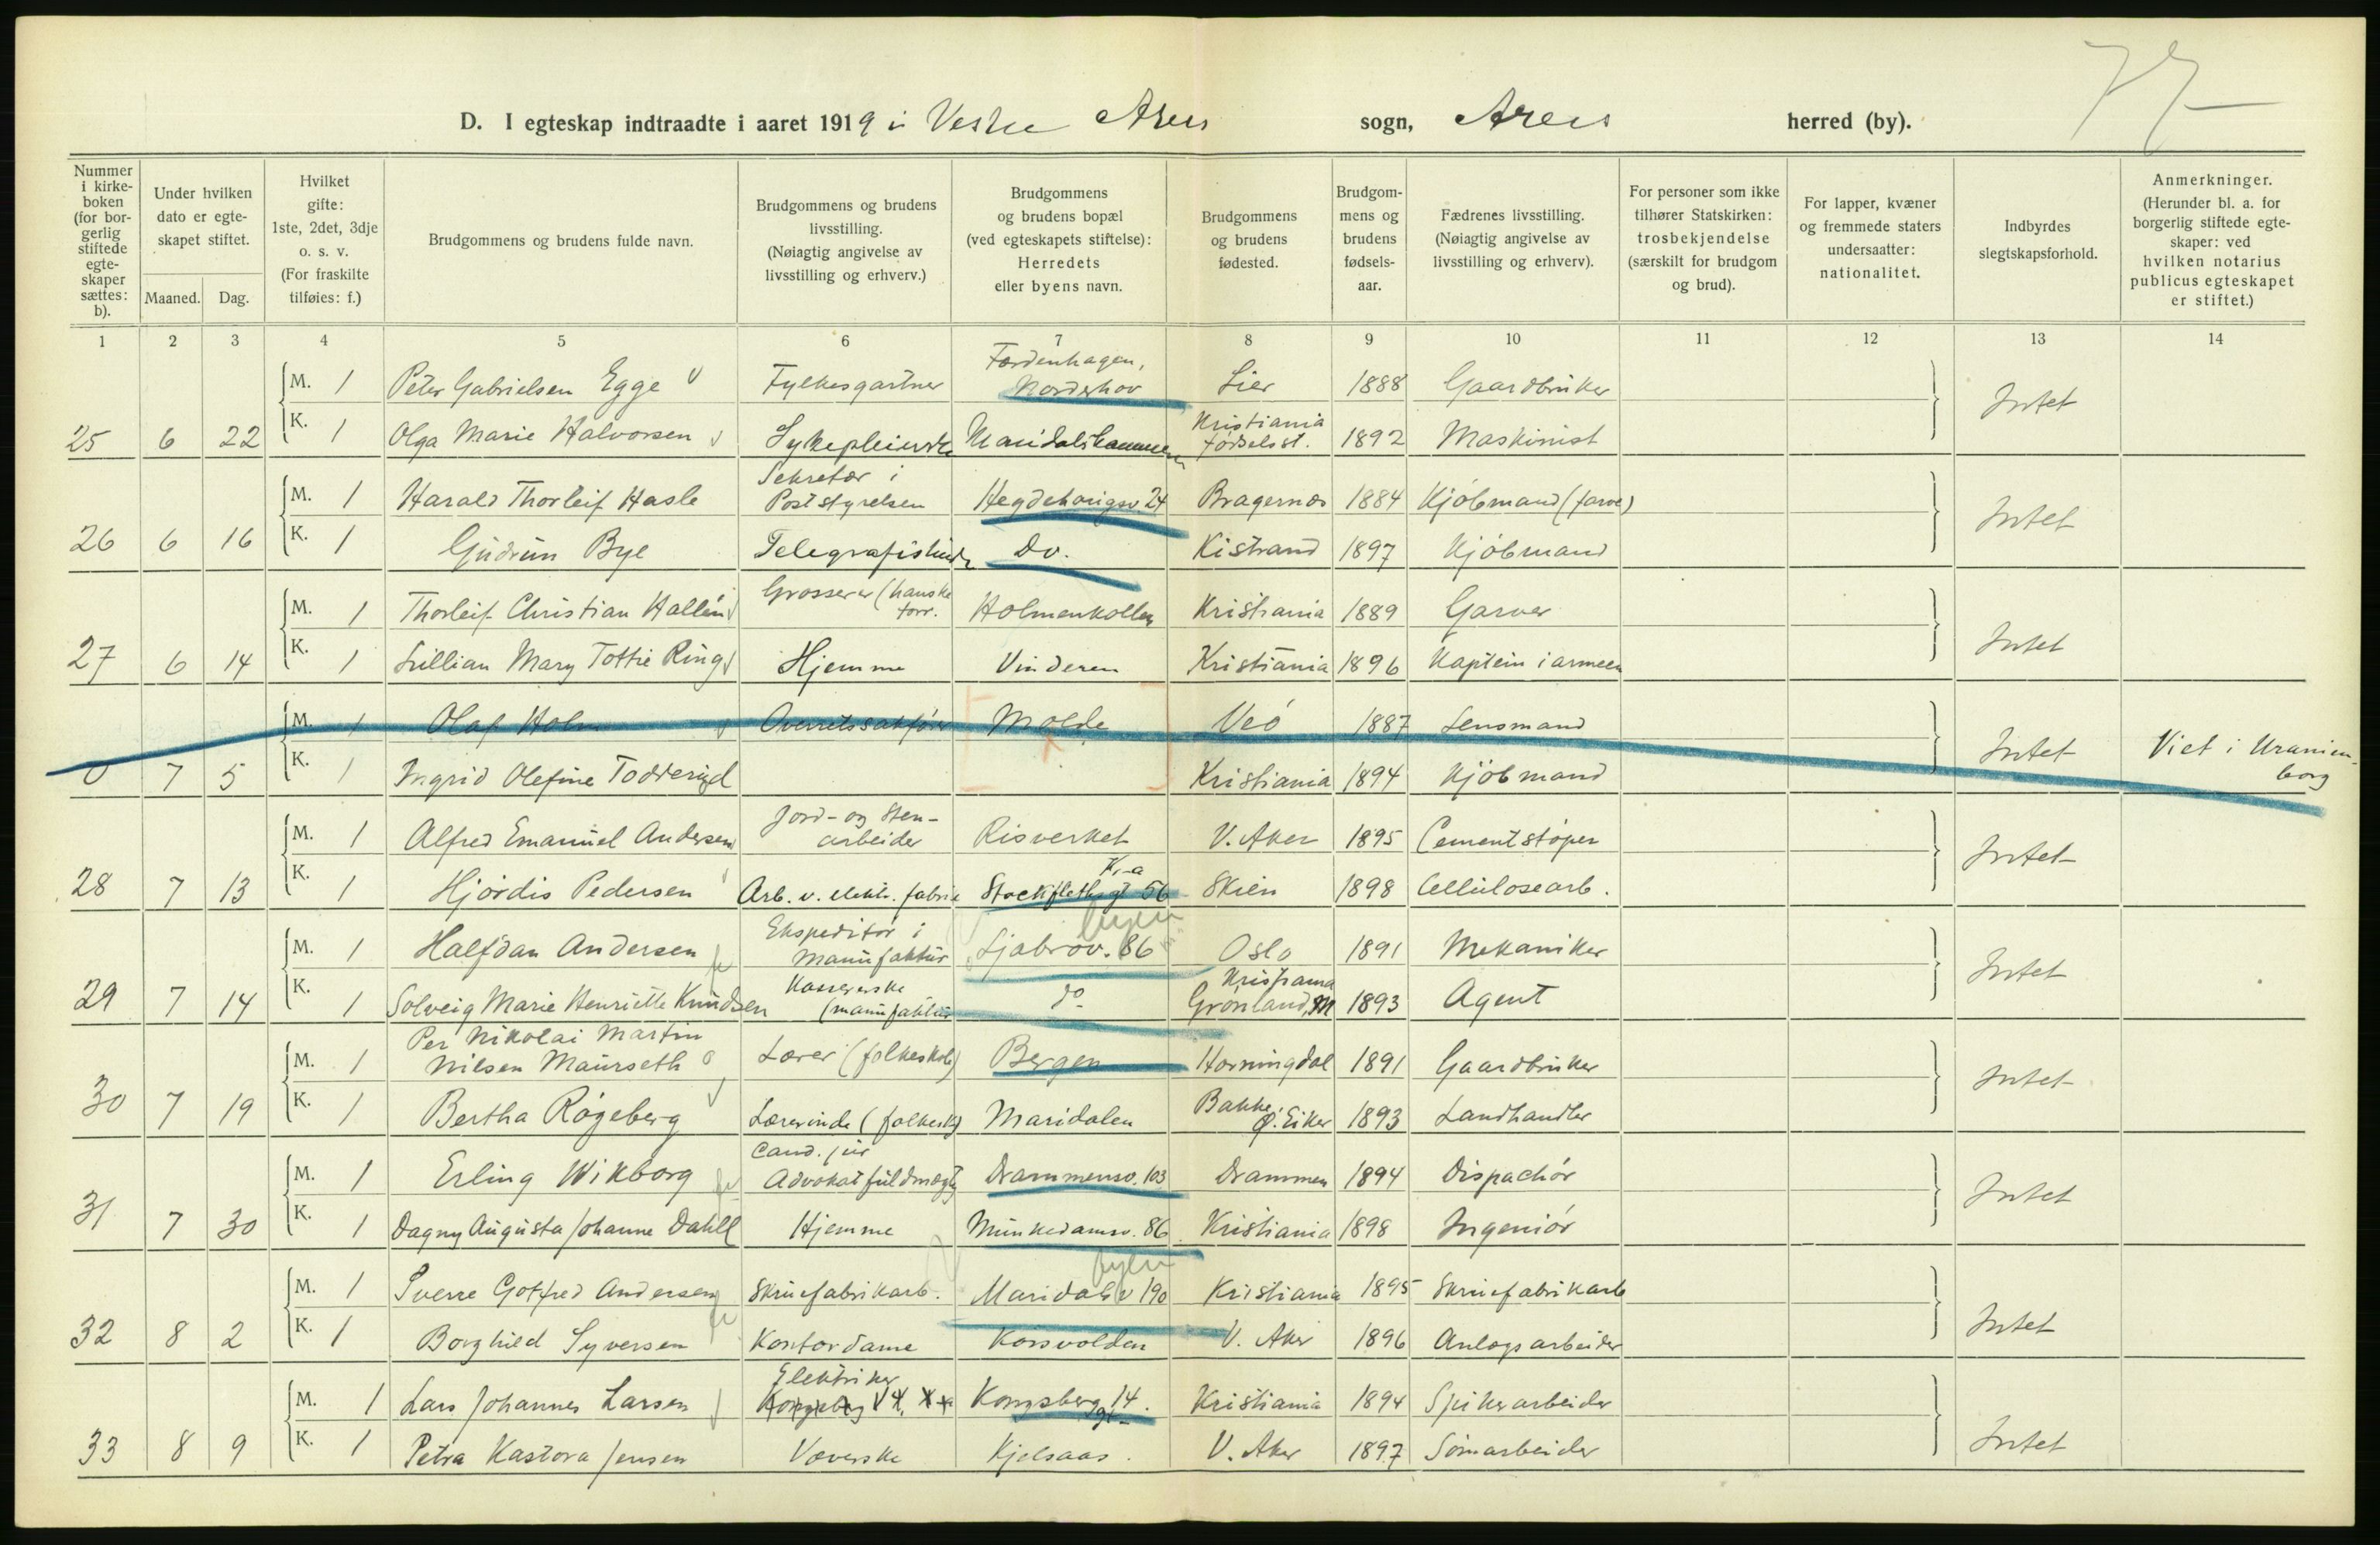 D. I egteskap indtraadte i aaret 1919 i Vestre Akers sogn, Akers herred (by).
Nummer i kirkeboken (for borgerlig stiftede egteskaper sættes: b).
Under hvilken dato er egteskapet stiftet.
Maaned. Dag.
Hvilket gifte: 1ste, 2det, 3dje o. s. v. (For fraskilte tilføies: f.)
Brudgommens og brudens fulde navn.
Brudgommens og brudens livsstilling. (Nøiagtig angivelse av livsstilling og erhverv.)
Brudgommens og brudens bopæl (ved egteskapets stiftelse): Herredets eller byens navn.
Brudgommens og brudens fødested.
Brudgommens og brudens fødselsaar.
Fædrenes livsstilling. (Nøiagtig angivelse av livsstilling og erhverv).
For personer som ikke tilhører Statskirken: trosbekjendelse (særskilt for brudgom og brud).
For lapper, kvæner og fremmede staters undersaatter: nationalitet.
Indbyrdes slegtskapsforhold.
Anmerkninger. (Herunder bl. a. for borgerlig stiftede egteskaper: ved hvilken notarius publicus egteskapet er stiftet.)
1 2 3 4 5 6 7 8 9 10 11 12 13 14
M. 1 Peter Gabrielsen Egge Fylkesgartner Fordenhagen, Norderhov Lier 1888 Gaardbruker Intet
25 6 22 K. 1 Olga Marie Halvorsen Sykepleierske Maridalshammeren Kristiania Fødselsst. 1892 Maskinist
M. 1 Harald Thorleif Hasle Sekretær i Poststyrelsen Hegdehaugsv. 24 Bragernæs 1884 Kjøbmand (farve) Intet
26 6 16 K. 1 Gudrun Bye Telegrafistinde Do. Kistrand 1897 Kjøbmand
M. 1 Thorleif Christian Hallén Grosserer (hanske forr. Holmenkollen Kristiania 1889 Garver Intet
27 6 14 K. 1 Lillian Mary Tottie Ring Hjemme Vinderen Kristiania 1896 Kaptein i armeen
M. 1 Olaf Holm Overretssakfører Molde Veø 1887 Lensmand Intet Viet i Uranienborg
0 7 5 K. 1 Ingrid Olefine Todderud Kristiania 1894 Kjøbmand
M. 1 Alfred Emanuel Andersen Jord- og Sten-arbeider Risverket V. Aker 1895 Cementstøper Intet
28 7 13 K. 1 Hjørdis Pedersen Arb. v. elektr. fabrik Kr.a Stockflethsgt 56 Skien 1898 Cellulosearb.
M. 1 Halfdan Andersen Ekspeditør i Manufaktur Ljabrov. 86 byen Oslo 1891 Mekaniker Intet
29 7 14 K. 1 Solveig Marie Henriette Knudsen Kassererske (manufaktur do Kristiania Grønland, M 1893 Agent
M. 1 Per Nikolai Martin Nilsen Maurseth Lærer (folkeskole) Bergen Horningdal 1891 Gaardbruker Intet
30 7 19 K. 1 Bertha Røgeberg Lærerinde (folkesk) Maridalen Bakke, Ø. Eiker 1893 Landhandler
M. 1 Erling Wikborg Cand. jur Advokatfuldmægtig Drammensv. 103 Drammen 1894 Dispachør Intet
31 7 30 K. 1 Dagny Augusta Johanne Dahll Hjemme Munkedamsv. 86 Kristiania 1898 Ingeniør
M. 1 Sverre Gotfred Andersen Skruefabrikarb. Maridalsv 190 byen Kristiania 1895 Skruefabrikarb Intet
32 8 2 K. 1 Borghild Syversen Kontordame Korsvolden V. Aker 1896 Anlægsarbeider
M. 1 Lars Johannes Larsen Elektriker Kongsberggt 14. Kristiania 1894 Spikerarbeider Intet
33 8 9 K. 1 Petra Kastora Jensen Væverske Kjelsaas. V. Aker 1897 Sømarbeider